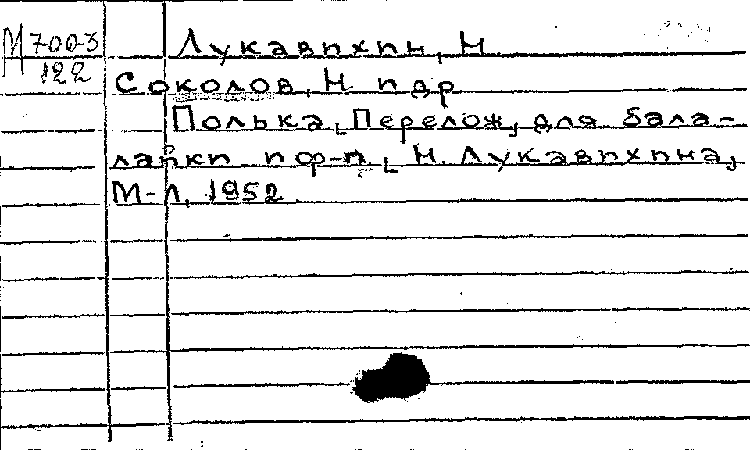 М 7003
122
Лукавихин, Н
Соколов, Н. и др
Полька, Перелож, для бала-
лайки и ф-п, Н. Лукавихина,
М-Л, 1952